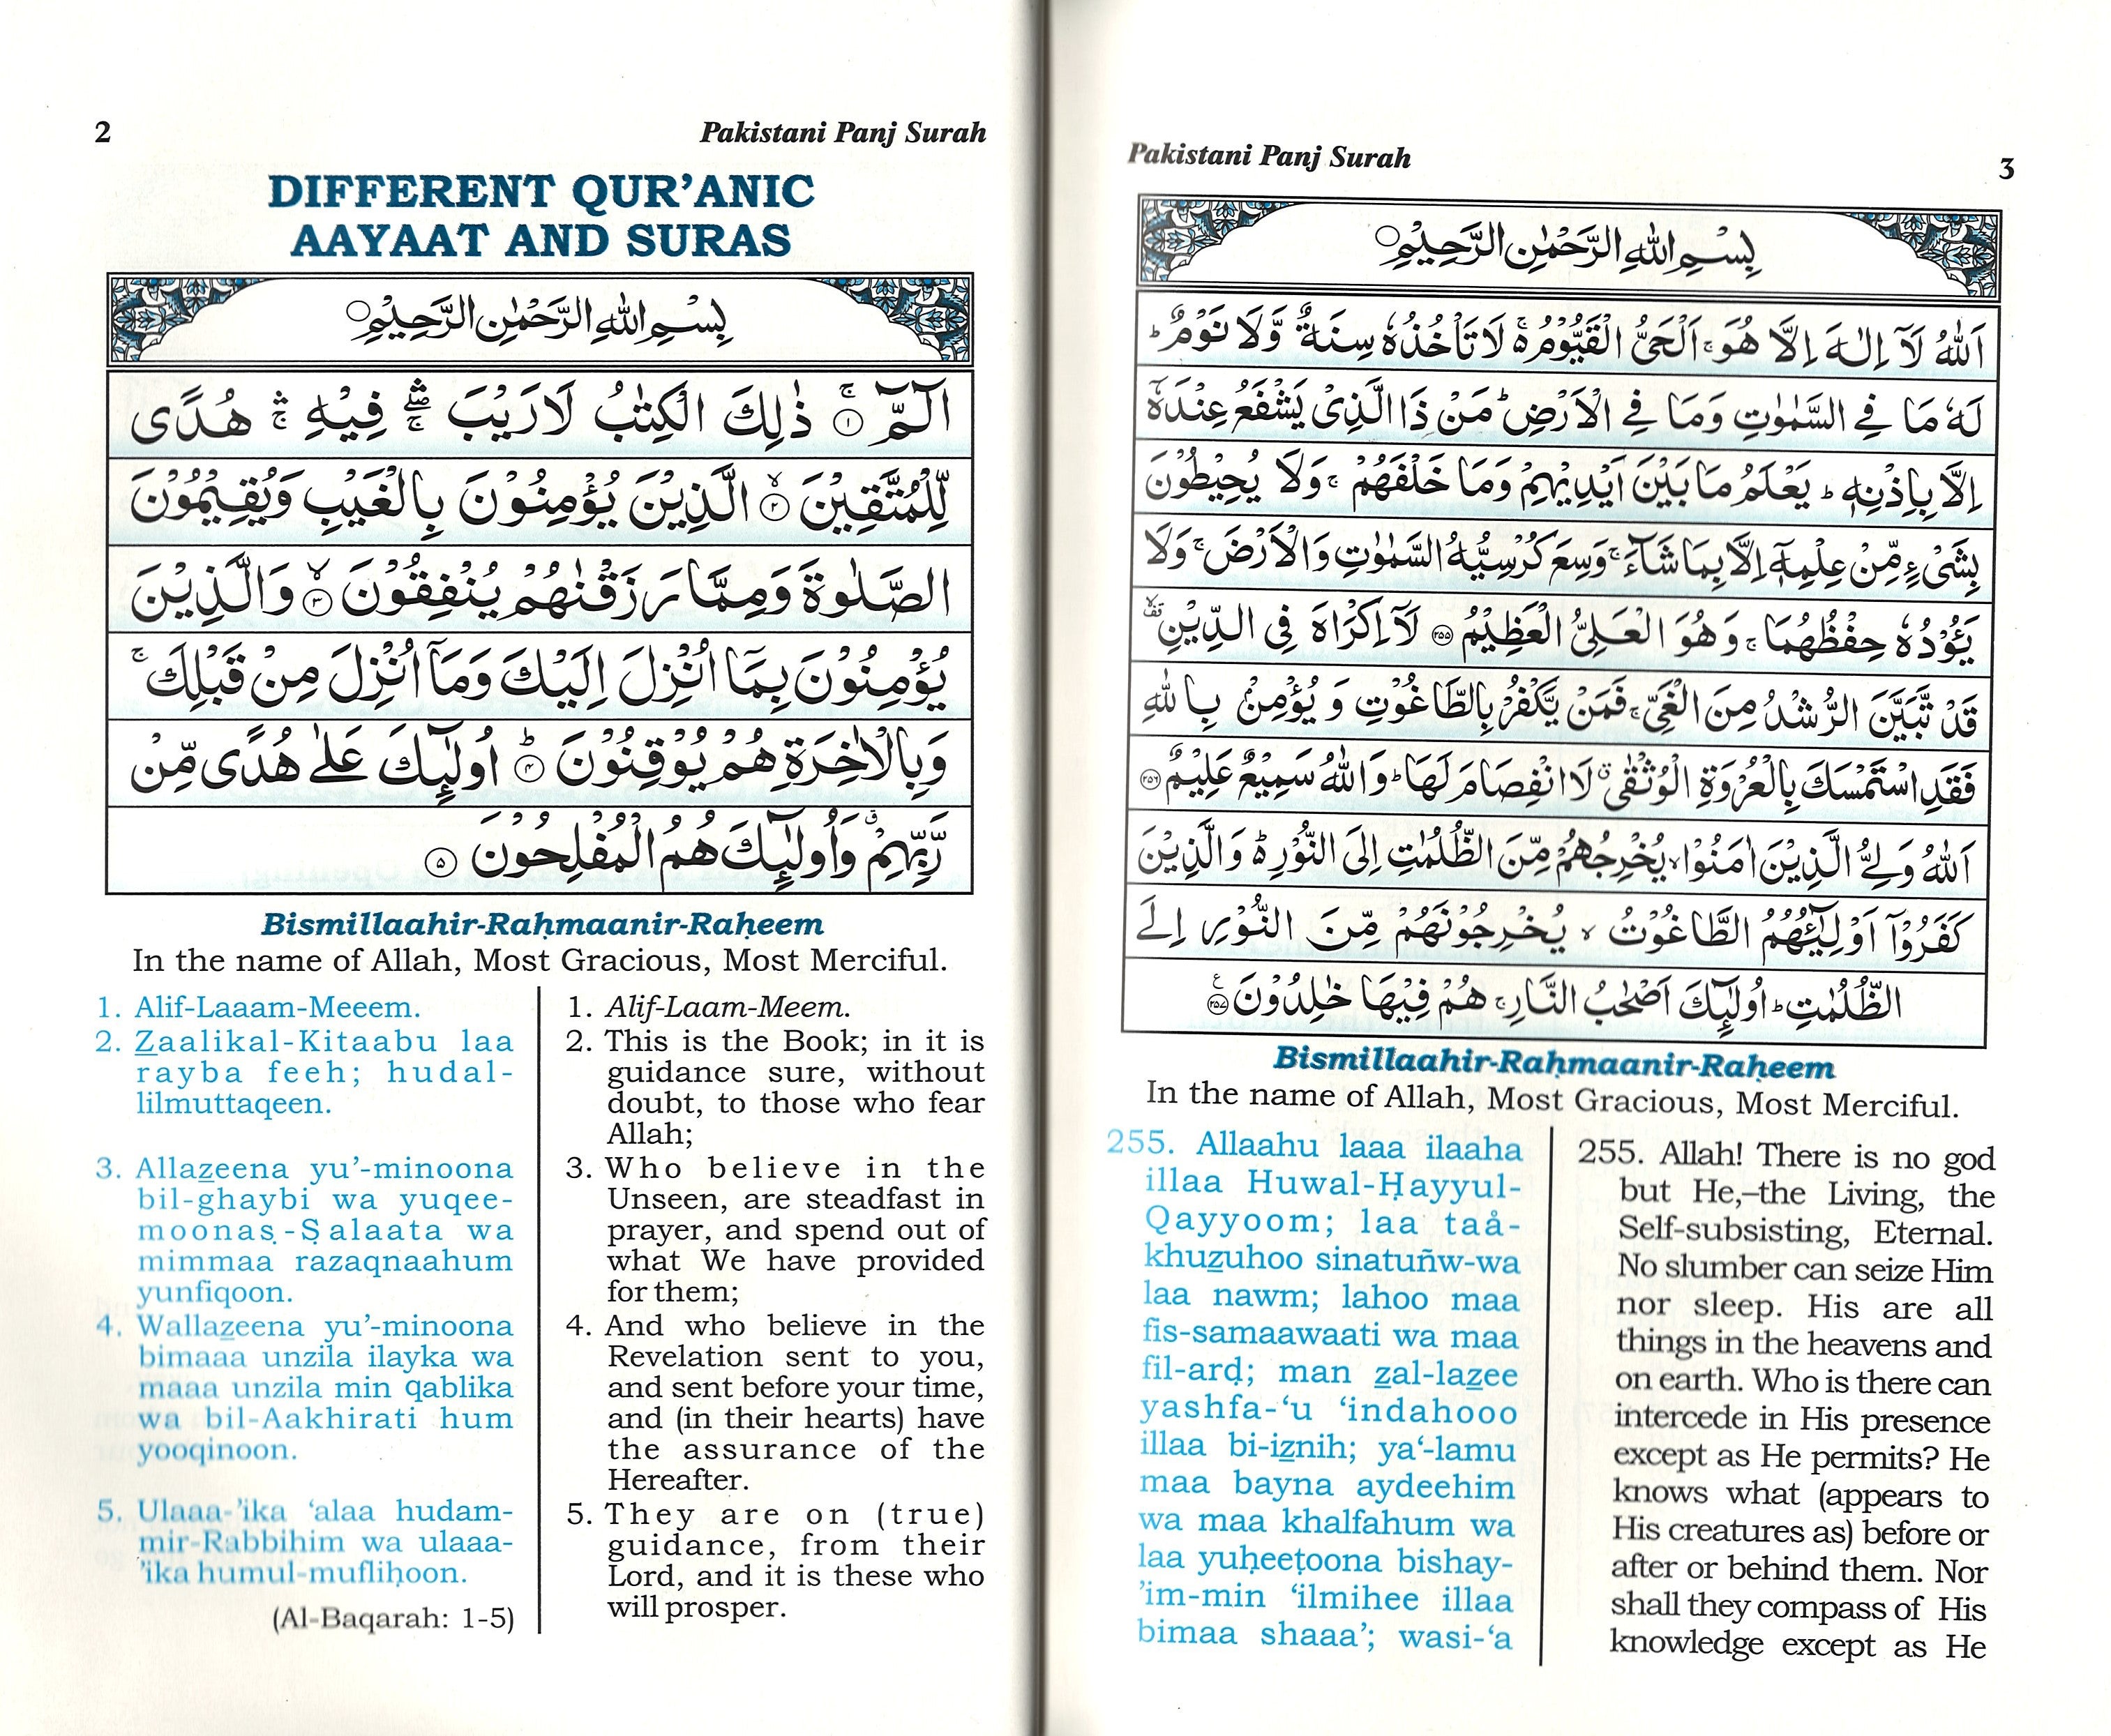 2
Pakistani Panj Surah
DIFFERENT QUR’ANIC
AAYAAT AND SURAS
بِسْمِ اللهِ الرَّحْمٰنِ الرَّحِيْمِ ○
الٓـمّٓ ۚ ﴿١﴾ ذٰلِكَ الْكِتٰبُ لَارَيْبَ ۛۖۚ فِيْهِ ۛۚ هُدًى
لِّلْمُتَّقِيْنَ ۙ﴿٢﴾ الَّذِيْنَ يُؤْمِنُوْنَ بِالْغَيْبِ وَيُقِيْمُوْنَ
الصَّلٰوةَ وَمِمَّا رَزَقْنٰهُمْ يُنْفِقُوْنَ ۙ﴿٣﴾ وَالَّذِيْنَ
يُؤْمِنُوْنَ بِمَآ اُنْزِلَ اِلَيْكَ وَمَآ اُنْزِلَ مِنْ قَبْلِكَ ۚ
وَبِالْاٰخِرَةِ هُمْ يُوْقِنُوْنَ ؕ﴿٤﴾ اُولٰٓئِكَ عَلٰى هُدًى مِّنْ
رَّبِّهِمْ ۗ وَاُولٰٓئِكَ هُمُ الْمُفْلِحُوْنَ ﴿٥﴾
Bismillaahir-Raḥmaanir-Raḥeem
In the name of Allah, Most Gracious, Most Merciful.
1. Alif-Laaam-Meeem.
2. Z̲aalikal-Kitaabu laa
rayba feeh; hudal-
lilmuttaqeen.
3. Allaz̲eena yu’-minoona
bil-ghaybi wa yuqee-
moonaṣ-Ṣalaata wa
mimmaa razaqnaahum
yunfiqoon.
4. Wallaz̲eena yu’-minoona
bimaaa unzila ilayka wa
maaa unzila min qablika
wa bil-Aakhirati hum
yooqinoon.
5. Ulaaa-’ika ‘alaa hudam-
mir-Rabbihim wa ulaaa-
’ika humul-mufliḥoon.
(Al-Baqarah: 1-5)
1. Alif-Laam-Meem.
2. This is the Book; in it is
guidance sure, without
doubt, to those who fear
Allah;
3. Who believe in the
Unseen, are steadfast in
prayer, and spend out of
what We have provided
for them;
4. And who believe in the
Revelation sent to you,
and sent before your time,
and (in their hearts) have
the assurance of the
Hereafter.
5. They are on (true)
guidance, from their
Lord, and it is these who
will prosper.
Pakistani Panj Surah
3
بِسْمِ اللهِ الرَّحْمٰنِ الرَّحِيْمِ ○
اَللهُ لَآ اِلٰهَ اِلَّا هُوَ ۚ اَلْحَىُّ الْقَيُّوْمُ ۬ۚ لَا تَاْخُذُهٗ سِنَةٌ وَّلَا نَوْمٌ ؕ
لَهٗ مَا فِى السَّمٰوٰتِ وَمَا فِى الْاَرْضِ ؕ مَنْ ذَا الَّذِىْ يَشْفَعُ عِنْدَهٗٓ
اِلَّا بِاِذْنِهٖ ؕ يَعْلَمُ مَا بَيْنَ اَيْدِيْهِمْ وَمَا خَلْفَهُمْ ۚ وَلَا يُحِيْطُوْنَ
بِشَىْءٍ مِّنْ عِلْمِهٖٓ اِلَّا بِمَا شَآءَ ۚ وَسِعَ كُرْسِيُّهُ السَّمٰوٰتِ وَالْاَرْضَ ۚ وَلَا
يَـُٔوْدُهٗ حِفْظُهُمَا ۚ وَهُوَ الْعَلِىُّ الْعَظِيْمُ ﴿٢٥٥﴾ لَآ اِكْرَاهَ فِى الدِّيْنِ ۟ۙ
قَدْ تَّبَيَّنَ الرُّشْدُ مِنَ الْغَىِّ ۚ فَمَنْ يَّكْفُرْ بِالطَّاغُوْتِ وَيُؤْمِنْ بِاللهِ
فَقَدِ اسْتَمْسَكَ بِالْعُرْوَةِ الْوُثْقٰى ۗ لَا انْفِصَامَ لَهَا ؕ وَاللهُ سَمِيْعٌ عَلِيْمٌ ﴿٢٥٦﴾
اَللهُ وَلِىُّ الَّذِيْنَ اٰمَنُوْا ۙ يُخْرِجُهُمْ مِّنَ الظُّلُمٰتِ اِلَى النُّوْرِ ۬ؕ وَالَّذِيْنَ
كَفَرُوْٓا اَوْلِيٰٓـُٔهُمُ الطَّاغُوْتُ ۙ يُخْرِجُوْنَهُمْ مِّنَ النُّوْرِ اِلَى
الظُّلُمٰتِ ؕ اُولٰٓئِكَ اَصْحٰبُ النَّارِ ۚ هُمْ فِيْهَا خٰلِدُوْنَ ﴿٢٥٧﴾ ع
Bismillaahir-Raḥmaanir-Raḥeem
In the name of Allah, Most Gracious, Most Merciful.
255. Allaahu laaa ilaaha
illaa Huwal-Ḥayyul-
Qayyoom; laa taå-
khuz̲uhoo sinatuñw-wa
laa nawm; lahoo maa
fis-samaawaati wa maa
fil-arḍ; man z̲al-laz̲ee
yashfa-‘u ‘indahooo
illaa bi-iz̲nih; ya‘-lamu
maa bayna aydeehim
wa maa khalfahum wa
laa yuḥeeṭoona bishay-
’im-min ‘ilmihee illaa
bimaa shaaa’; wasi-‘a
255. Allah! There is no god
but He,–the Living, the
Self-subsisting, Eternal.
No slumber can seize Him
nor sleep. His are all
things in the heavens and
on earth. Who is there can
intercede in His presence
except as He permits? He
knows what (appears to
His creatures as) before or
after or behind them. Nor
shall they compass of His
knowledge except as He